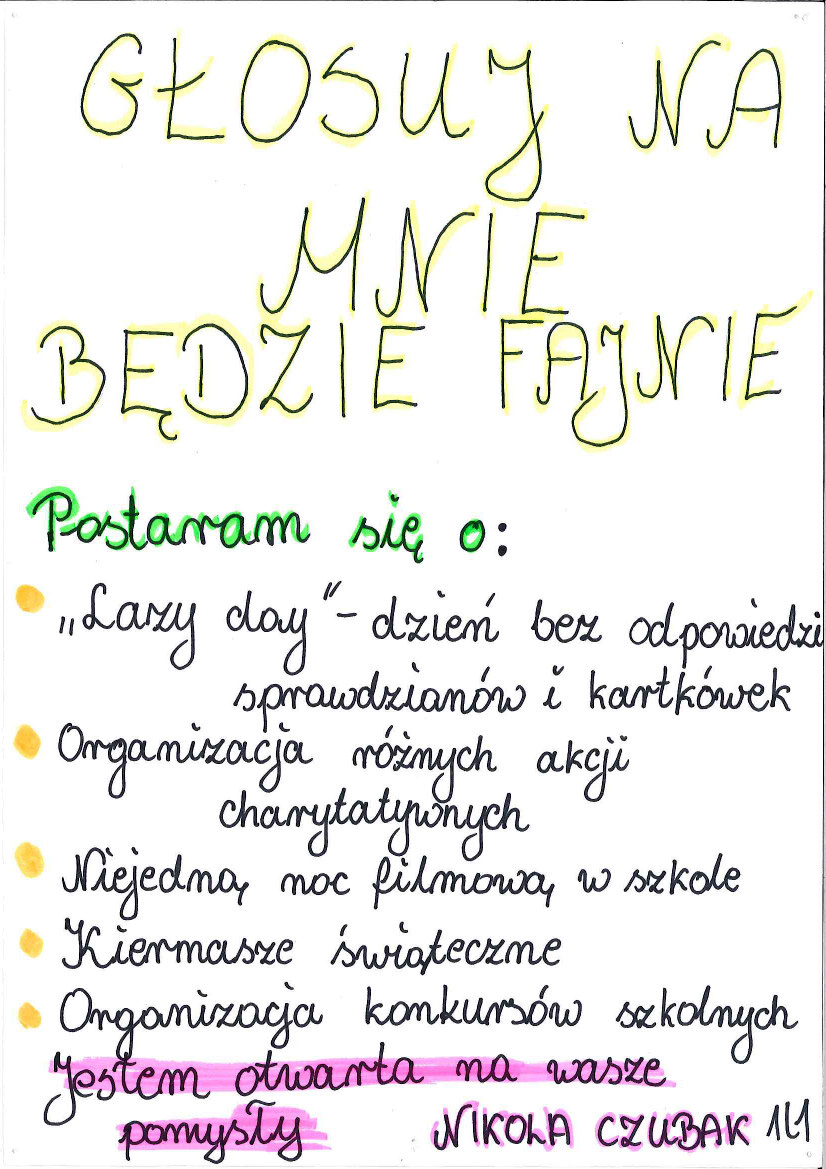 GŁOSUJ NA
MNIE
BĘDZIE FAJNIE
Postaram się o:
„Lazy day"- dzień bez odpowiedzi
sprawdzianów i kartkówek
Organizacja różnych akcji
charytatywnych
Niejedną noc filmową w szkole
Kiermasze świąteczne
Organizacja konkursów szkolnych
Jestem otwarta na wasze
pomysły NIKOLA CZUBAK